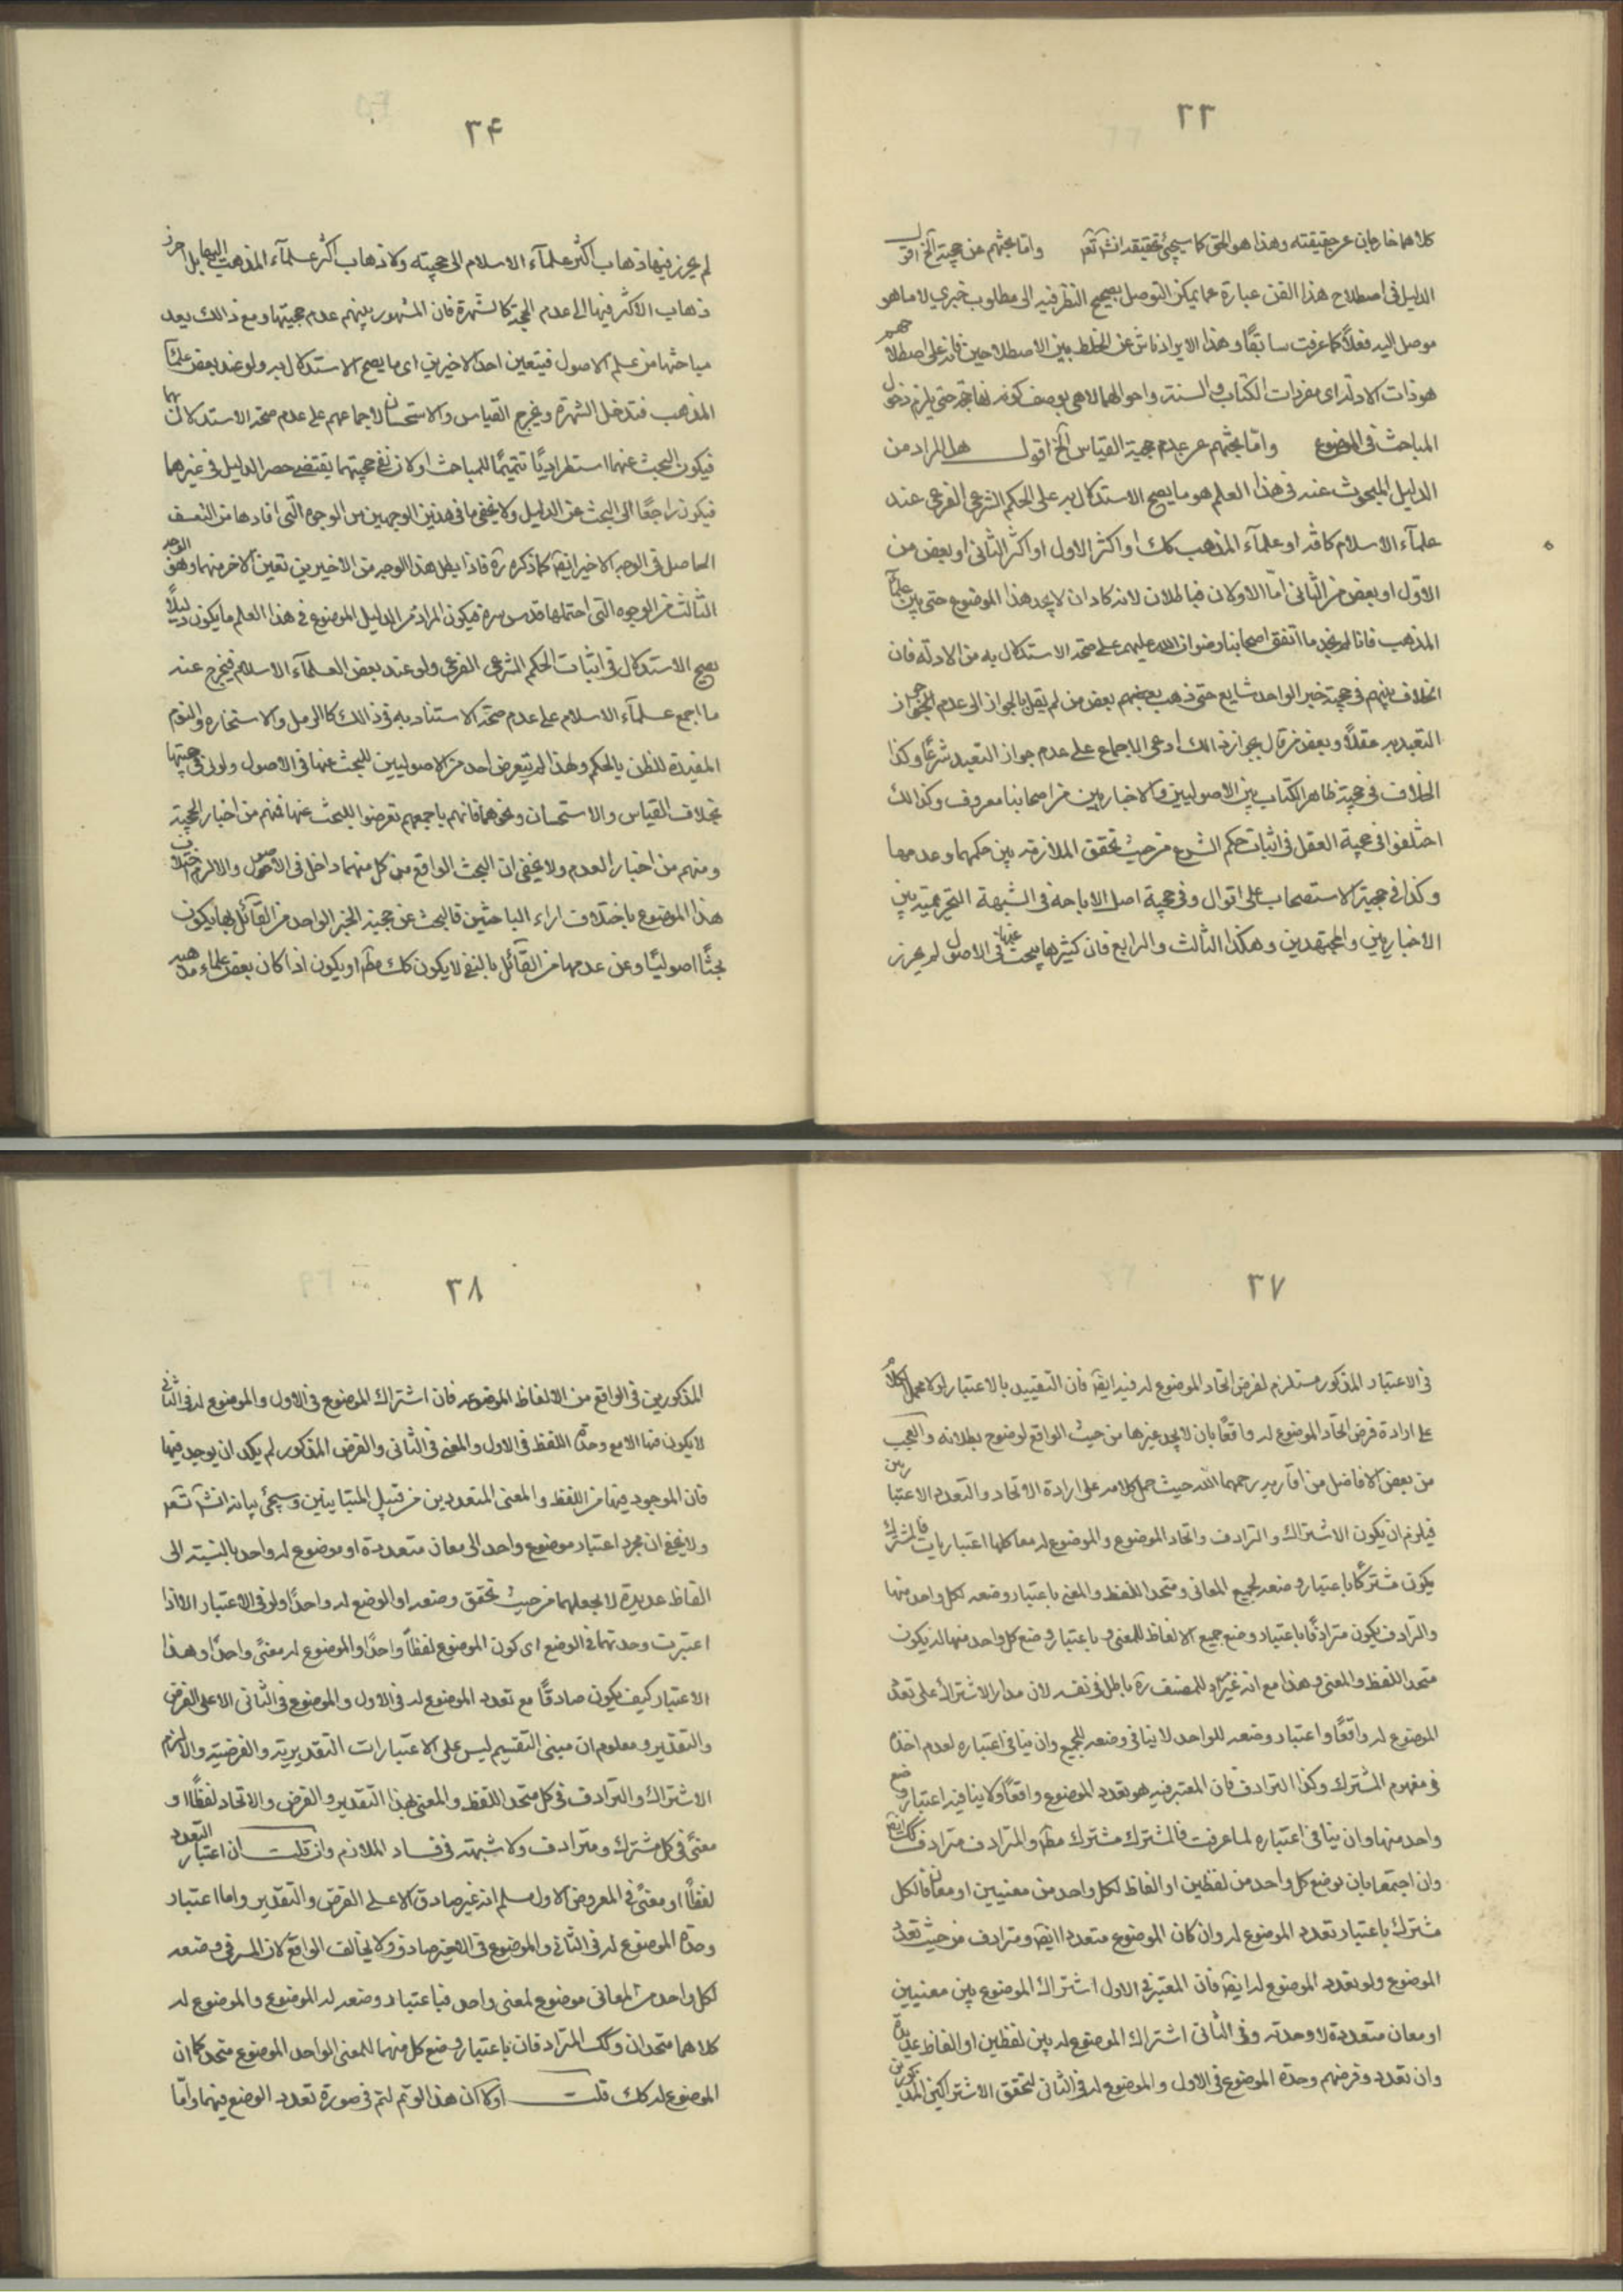 ٣٣
كلاهما خارجان عن حقيقته وهذا هو الحق كما سيجئ تحقيقه انشآ تعم واما بحثهم عن حجية الخ اقول
الدليل فى اصطلاح هذا الفن عبارة عما يمكن التوصل بصحيح النظر فيه الى مطلوب خبري لا ما هو
موصل اليه فعلاً كما عرفت سابقًا وهذا الايراد ناش عن الخلط بين الاصطلاحين فانه على اصطلاحهم
هو ذات الادلة اى مفردات الكتاب والسنة واحوالهما لا هى بوصف كونها حجة حتى يلزم دخول
المباحث فى الموضوع واما بحثهم عن عدم حجية القياس الخ اقول هل المراد من
الدليل المبحوث عنه فى هذا العلم هو ما يصح الاستدلال به على الحكم الشرعى الفرعى عند
علمآء الاسلام كافة او علمآء المذهب كك او اكثر الاول او اكثر الثانى او بعض من
الاول او بعض من الثانى اما الاولان فباطلان لانه كاد ان لا يجد هذا الموضوع حتى بين علمآ
المذهب فانا لم نجد ما اتفق اصحابنا رضوان الله عليهم على صحة الاستدلال به من الادلة فان
الخلاف بينهم فى حجية خبر الواحد شايع حتى ذهب بعضهم بعض من لم يقل بالجواز الى عدم جواز
التعبد به عقلاً وبعض من قال بجواز ذلك ادعى الاجماع على عدم جواز التعبد شرعًا وكذا
الخلاف فى حجية ظاهر الكتاب بين الاصوليين والاخباريين من اصحابنا معروف وكذالك
اختلفوا فى حجية العقل فى اثبات حكم الشرع من حيث تحقق الملازمة بين حكمهما وعدمها
وكذا فى حجية الاستصحاب على اقوال وفى حجية اصل الاباحة فى الشبهة التحريمية بين
الاخباريين والمجتهدين وهكذا الثالث والرابع فان كثيرها يبحث عنها فى الاصول لم يحرز
٣۴
لم يحرز فيها ذهاب اكثر علمآء الاسلام الى حجيته ولا ذهاب اكثر علمآء المذهب اليها بل احرز
ذهاب الاكثر فيها الى عدم الحجية كالشهرة فان المشهور بينهم عدم حجيتها ومع ذالك يعد
مباحثها من علم الاصول فيتعين احد الاخيرين اى ما يصح الاستدلال به ولو عند بعض علمآ
المذهب فتدخل الشهرة ويخرج القياس والاستحسان لاجماعهم على عدم صحة الاستدلال بهما
فيكون البحث عنهما استطراديًا تتميمًا للمباحث او لان نفى حجيتهما يقتضى حصر الدليل فى غيرهما
فيكون راجعًا الى البحث عن الدليل ولا يخفى ما فى هذين الوجهين من الوجوه التى افادها من التعسف
الحاصل فى الوجه الاخير ايضا كما ذكره ره فاذا بطل هذا الوجه من الاخيرين تعين الآخر منهما وهو الوجه
الثالث من الوجوه التى احتملها قدس سره فيكون المراد من الدليل الموضوع فى هذا العلم ما يكون دليلاً
يصح الاستدلال فى اثبات الحكم الشرعى الفرعى ولو عند بعض العلمآء الاسلام فيخرج عنه
ما اجمع علمآء الاسلام على عدم صحة الاستناد به فى ذالك كالرمل والاستخارة والنوم
المفيدة للظن بالحكم ولهذا لم يتعرض احد من الاصوليين للبحث عنها فى الاصول ولو لنفى حجيتها
بخلاف القياس والاستحسان ونحوهما فانهم باجمعهم تعرضوا للبحث عنها فمنهم من اختار الحجية
ومنهم من اختار العدم ولا يخفى ان البحث الواقع من كل منهما داخل فى الاصول والا لزم اختلاف
هذا الموضوع باختلاف اراء الباحثين فالبحث عن حجية الخبر الواحد من القآئل بها يكون
بحثًا اصوليًا وعن عدمها من القآئل بالنفى لا يكون كك مطلقا او يكون اذا كان بعض علماء مذهبه
٣٧
فى الاعتبار المذكور مستلزم لفرض اتحاد الموضوع له فيه ايضا فان التقييد بالاعتبار اولا محمل الكلام
على ارادة فرض اتحاد الموضوع له واقعًا بان لا يجد غيرها من حيث الواقع لوضوح بطلانه والعجب
من بعض الافاضل من اقاربه رحمهما الله حيث حمل كلامه على ارادة الاتحاد والتعدد الاعتباريين
فيلزم ان يكون الاشتراك والترادف واتحاد الموضوع والموضوع له معا كلها اعتباريات فالمشترك
يكون مشتركًا باعتبار وضعه لجميع المعانى ومتحد اللفظ والمعنى باعتبار وضعه لكل واحد منها
والترادف يكون مترادفًا باعتبار وضع جميع الالفاظ للمعنى و باعتبار وضع كل واحد منها له يكون
متحد اللفظ والمعنى وهذا مع انه غير مراد للمصنف ره باطل فى نفسه لان مدار الاشتراك على تعدد
الموضوع له واقعًا واعتبار وضعه للواحد لا ينافى وضعه للجميع وان ينافى اعتباره لعدم اخذه
فى مفهوم المشترك وكذا الترادف فان المعتبر فيه هو تعدد الموضوع واقعًا ولا ينافيه اعتبار وضع
واحد منها وان ينافى اعتباره لما عرفت فالمشترك مشترك مطلقا والمترادف مترادف كك ايضا
وان اجتمعا بان يوضع كل واحد من لفظين او الفاظ لكل واحد من معنيين او معان فالكل
مشترك باعتبار تعدد الموضوع له وان كان الموضوع متعددا ايضا ومترادف من حيث تعدد
الموضوع ولو تعدد الموضوع له ايضا فان المعتبر فى الاول اشتراك الموضوع بين معنيين
او معان متعددة لا وحدته وفى الثانى اشتراك الموضوع له بين لفظين او الفاظ عديدة
وان تعدد وفرضهم وحدة الموضوع فى الاول والموضوع له فى الثانى لتحقق الاشتراكين المذكورين
٣٨
المذكورين فى الواقع من الالفاظ الموضوعه فان اشتراك الموضوع فى الاول والموضوع له فى الثانى
لا يكون فيها الا مع وحدة اللفظ فى الاول والمعنى فى الثانى والفرض المذكور لم يكد ان يوجد فيها
فان الموجود فيها من اللفظ والمعنى المتعددين من قبيل المتباينين وسيجئ بيانه انشآ تعم
ولا يخفى ان مجرد اعتبار موضوع واحد الى معان متعددة او موضوع له واحد بالنسبة الى
الفاظ عديدة لا يجعلهما من حيث تحقق وضعه او الوضع له واحدًا ولو فى الاعتبار الا اذا
اعتبرت وحدتهما فى الوضع اى كون الموضوع لفظًا واحدًا والموضوع له معنىً واحدًا وهذا
الاعتبار كيف يكون صادقًا مع تعدد الموضوع له فى الاول والموضوع فى الثانى الا على الفرض
والتقدير ومعلوم ان مبنى التقسيم ليس على الاعتبارات التقديرية والفرضية والا لزم
الاشتراك والترادف فى كل متحد اللفظ والمعنى بهذا التقدير والفرض والاتحاد لفظًا او
معنىً فى كل مشترك ومترادف ولا شبهة فى فساد الملازم وان قلت ان اعتبار التعدد
لفظًا او معنىً فى المعروض الاول مسلم انه غير صادق الا على الفرض والتقدير واما اعتبار
وحدة الموضوع له فى الثانى والموضوع فى الاخير صادق ولا يخالف الواقع لان المسرفى وضعه
لكل واحد من المعانى موضوع لمعنى واحد فباعتبار وضعه له الموضوع والموضوع له
كلاهما متحدان وكك المترادفان باعتبار وضع كل منهما للمعنى الواحد الموضوع متحد كما ان
الموضوع له كك قلت اولا ان هذا لو تم لتم فى صورة تعدد الوضع فيهما واما